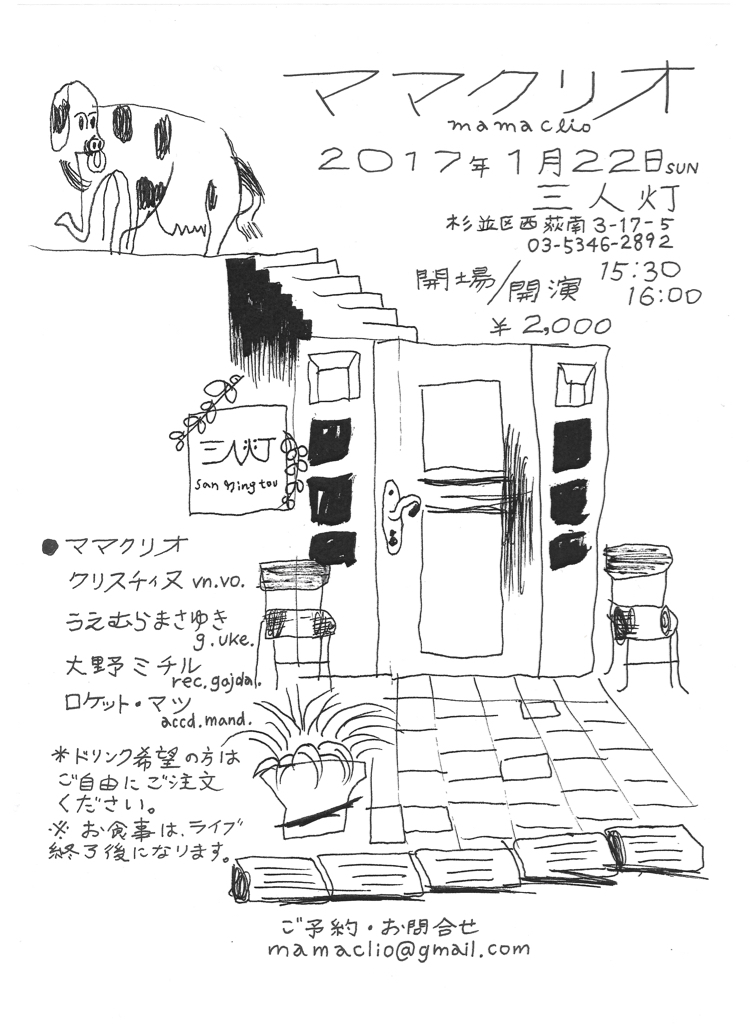 ママクリオ
mamaclio
2017年1月22日SUN
三人灯
杉並区西荻南3-17-5
03-5346-2892
開場/開演 15:30
16:00
¥2,000
三人灯
San Ning tou
●ママクリオ
クリスチィヌ vn.vo.
うえむらまさゆき
g.uke.
大野ミチル
rec.gajda.
ロケット・マツ
accd.mand.
*ドリンク希望の方は
ご自由にご注文
ください。
※お食事は、ライブ
終了後になります。
ご予約・お問合せ
mamaclio@gmail.com